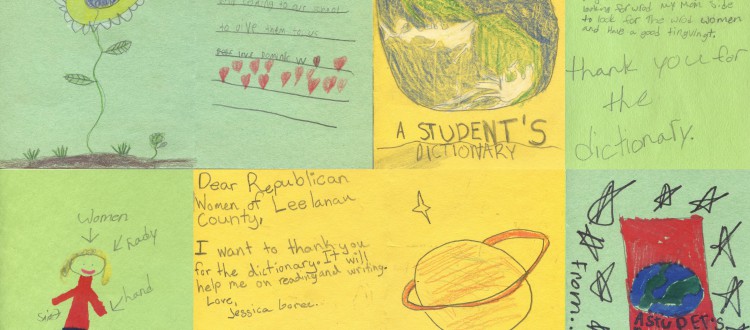 coming to our school
to give them to us
Dominic W
A STUDENT'S
DICTIONARY
looking for what my Mom
to look for the women
and have a good
thank you for
the
dictionary.
Women
hand
Dear Republican
Women of Leelanau
County,
I want to thank you
for the dictionary. It will
help me on reading and writing.
Love,
Jessica
From..
A STUDET'S